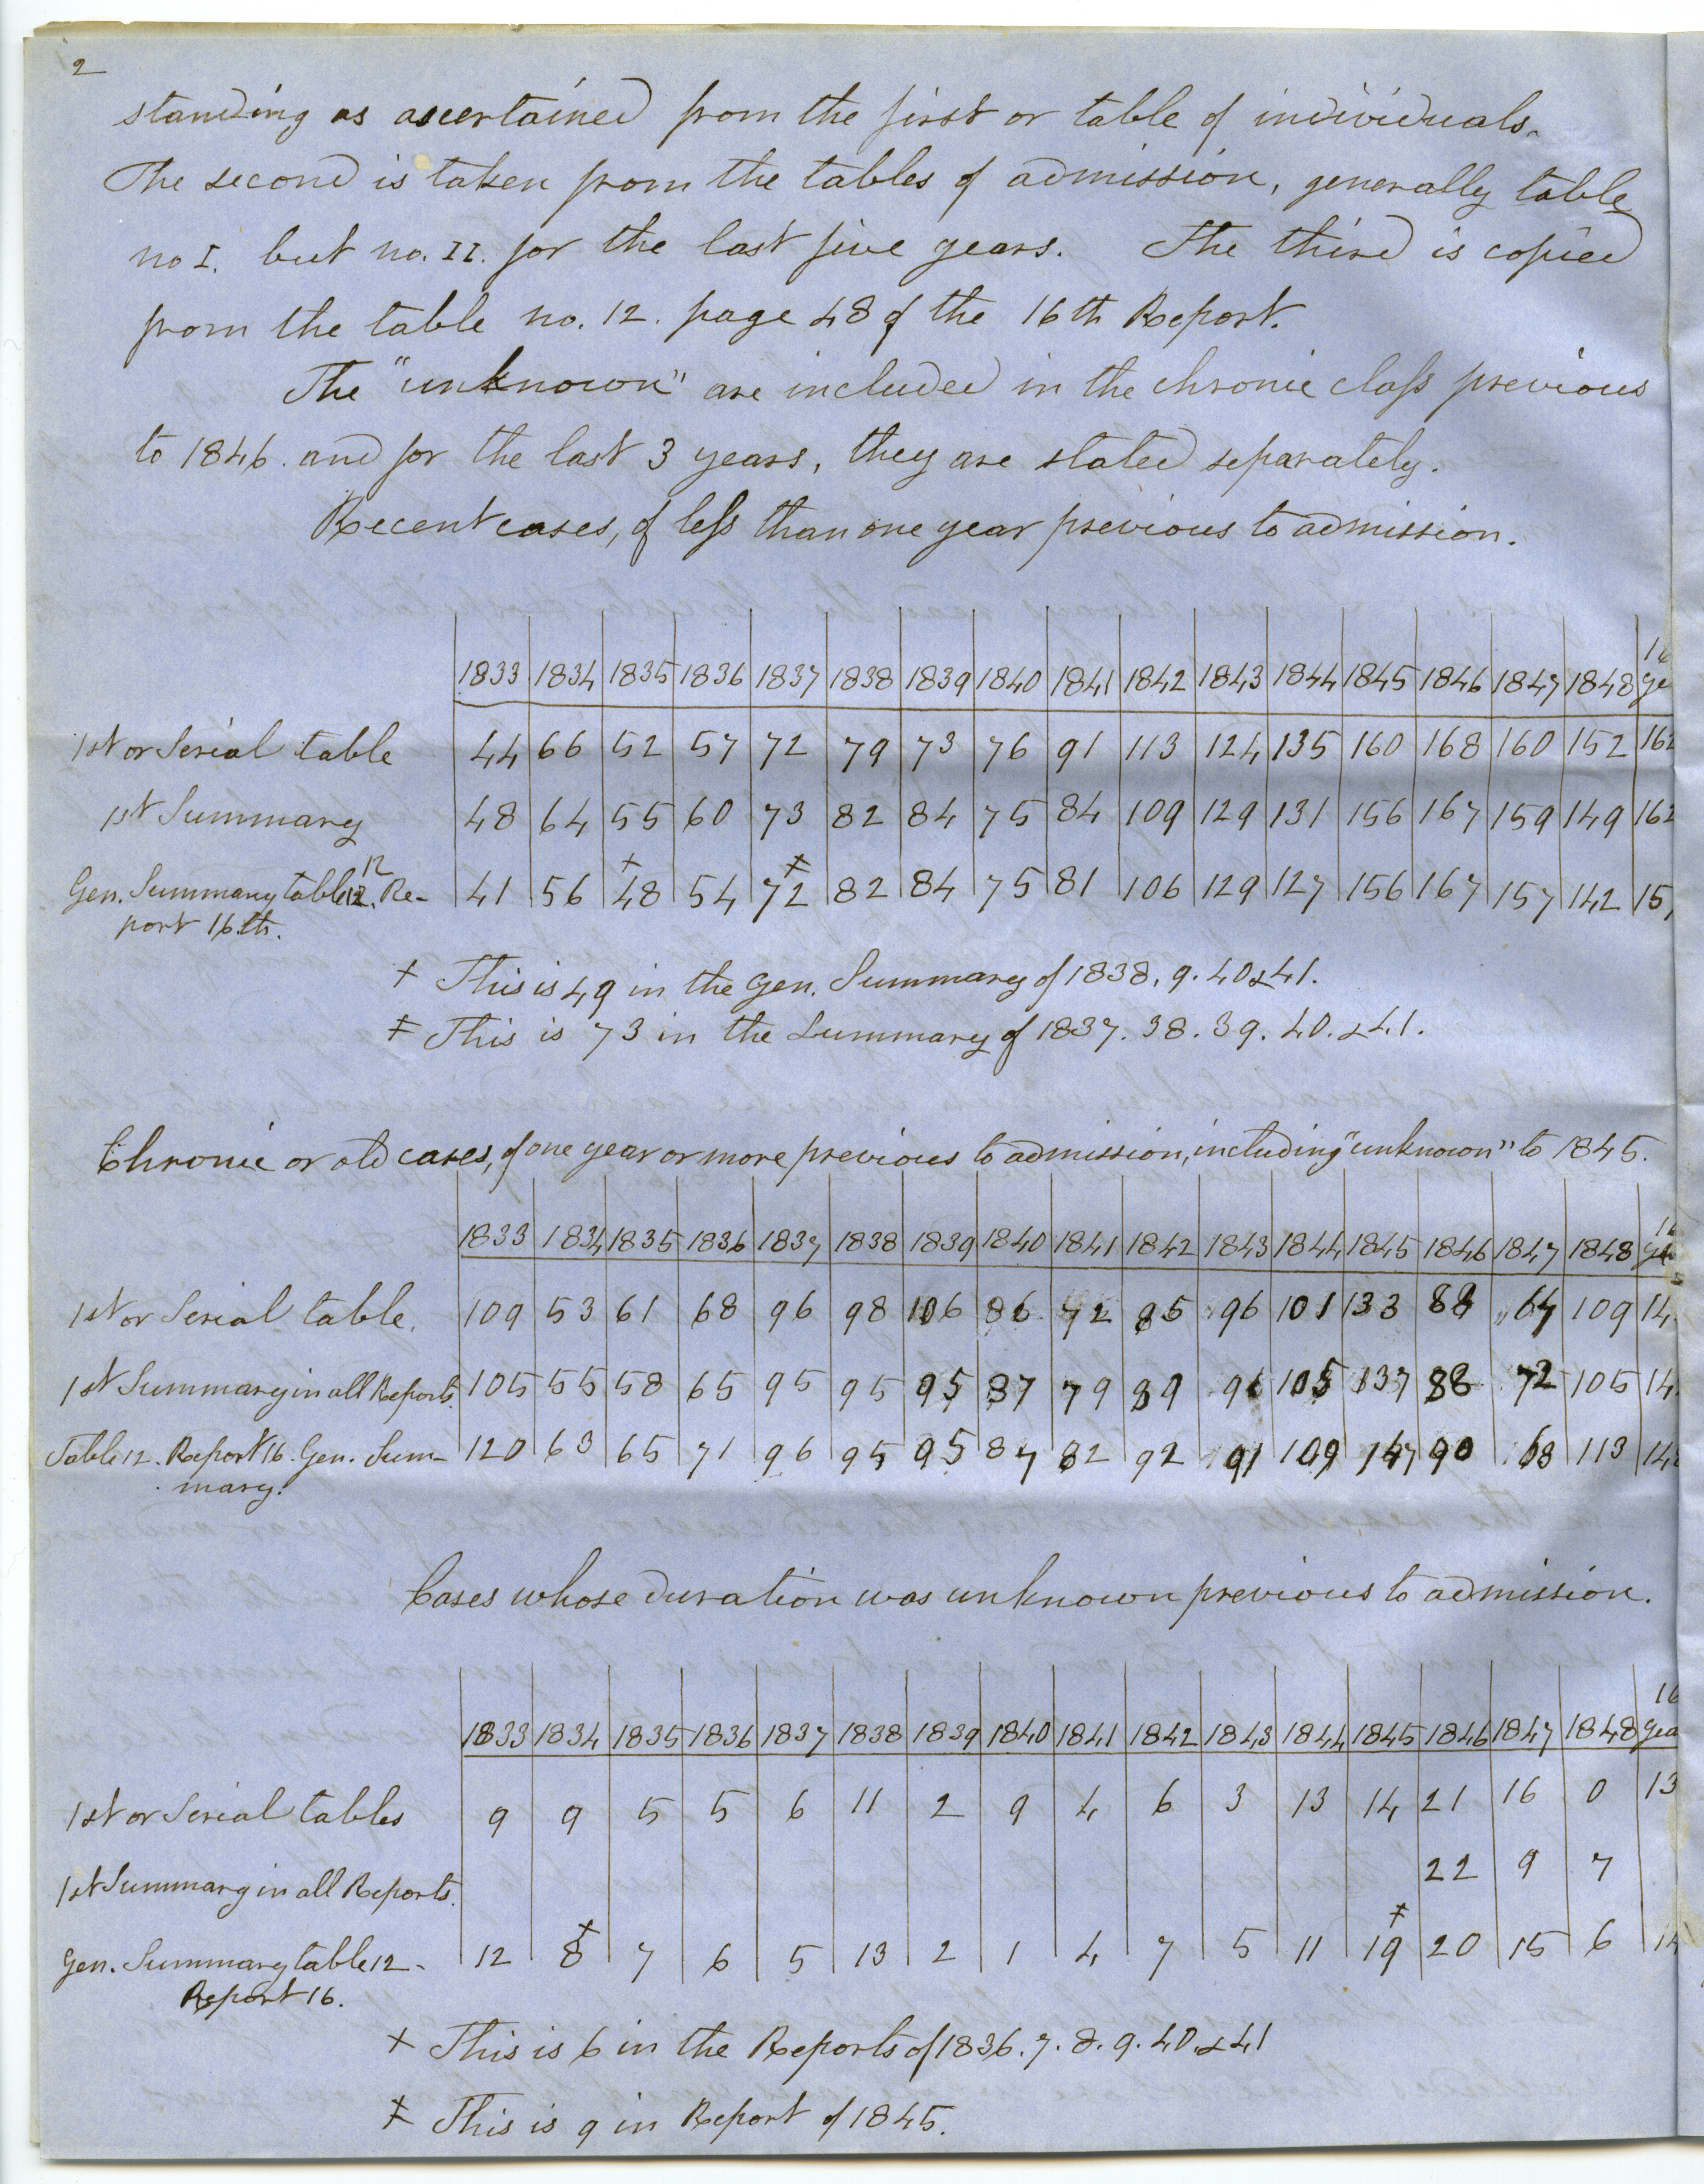 2
standing as ascertained from the first or table of individuals.
The second is taken from the tables of admission, generally table
no I. but no. II. for the last five years. The third is copied
from the table no. 12. page 48 of the 16th Report.
The "unknown" are included in the chronic class previous
to 1846. and for the last 3 years, they are stated separately.
Recent cases, of less than one year previous to admission.
16
1833 1834 1835 1836 1837 1838 1839 1840 1841 1842 1843 1844 1845 1846 1847 1848 ye
1st or Serial table 44 66 52 57 72 79 73 76 91 113 124 135 160 168 160 152 162
1st Summary 48 64 55 60 73 82 84 75 84 109 129 131 156 167 159 149 162
12 † ‡
Gen. Summary table 12. Re- 41 56 48 54 72 82 84 75 81 106 129 127 156 167 157 142 15
port 16th.
† This is 49 in the Gen. Summary of 1838. 9. 40 & 41.
‡ This is 73 in the Summary of 1837. 38. 39. 40. & 41.
Chronic or old cases, of one year or more previous to admission, including "unknown" to 1845.
16
1833 1834 1835 1836 1837 1838 1839 1840 1841 1842 1843 1844 1845 1846 1847 1848 ye
1st or Serial table. 109 53 61 68 96 98 106 86 72 85 96 101 133 88 64 109 14
1st Summary in all Reports. 105 55 58 65 95 95 95 87 79 89 91 105 137 88 72 105 14
Table 12. Report 16. Gen. Sum- 120 63 65 71 96 95 95 87 82 92 91 109 147 90 68 113 14
mary.
Cases whose duration was unknown previous to admission.
16
1833 1834 1835 1836 1837 1838 1839 1840 1841 1842 1843 1844 1845 1846 1847 1848 yea
1st or Serial tables 9 9 5 5 6 11 2 9 4 6 3 13 14 21 16 0 13
1st Summary in all Reports. 22 9 7
† ‡
Gen. Summary table 12- 12 8 7 6 5 13 2 1 4 7 5 11 19 20 15 6 14
Report 16.
† This is 6 in the Reports of 1836. 7. 8. 9. 40. & 41
‡ This is 9 in Report of 1845.